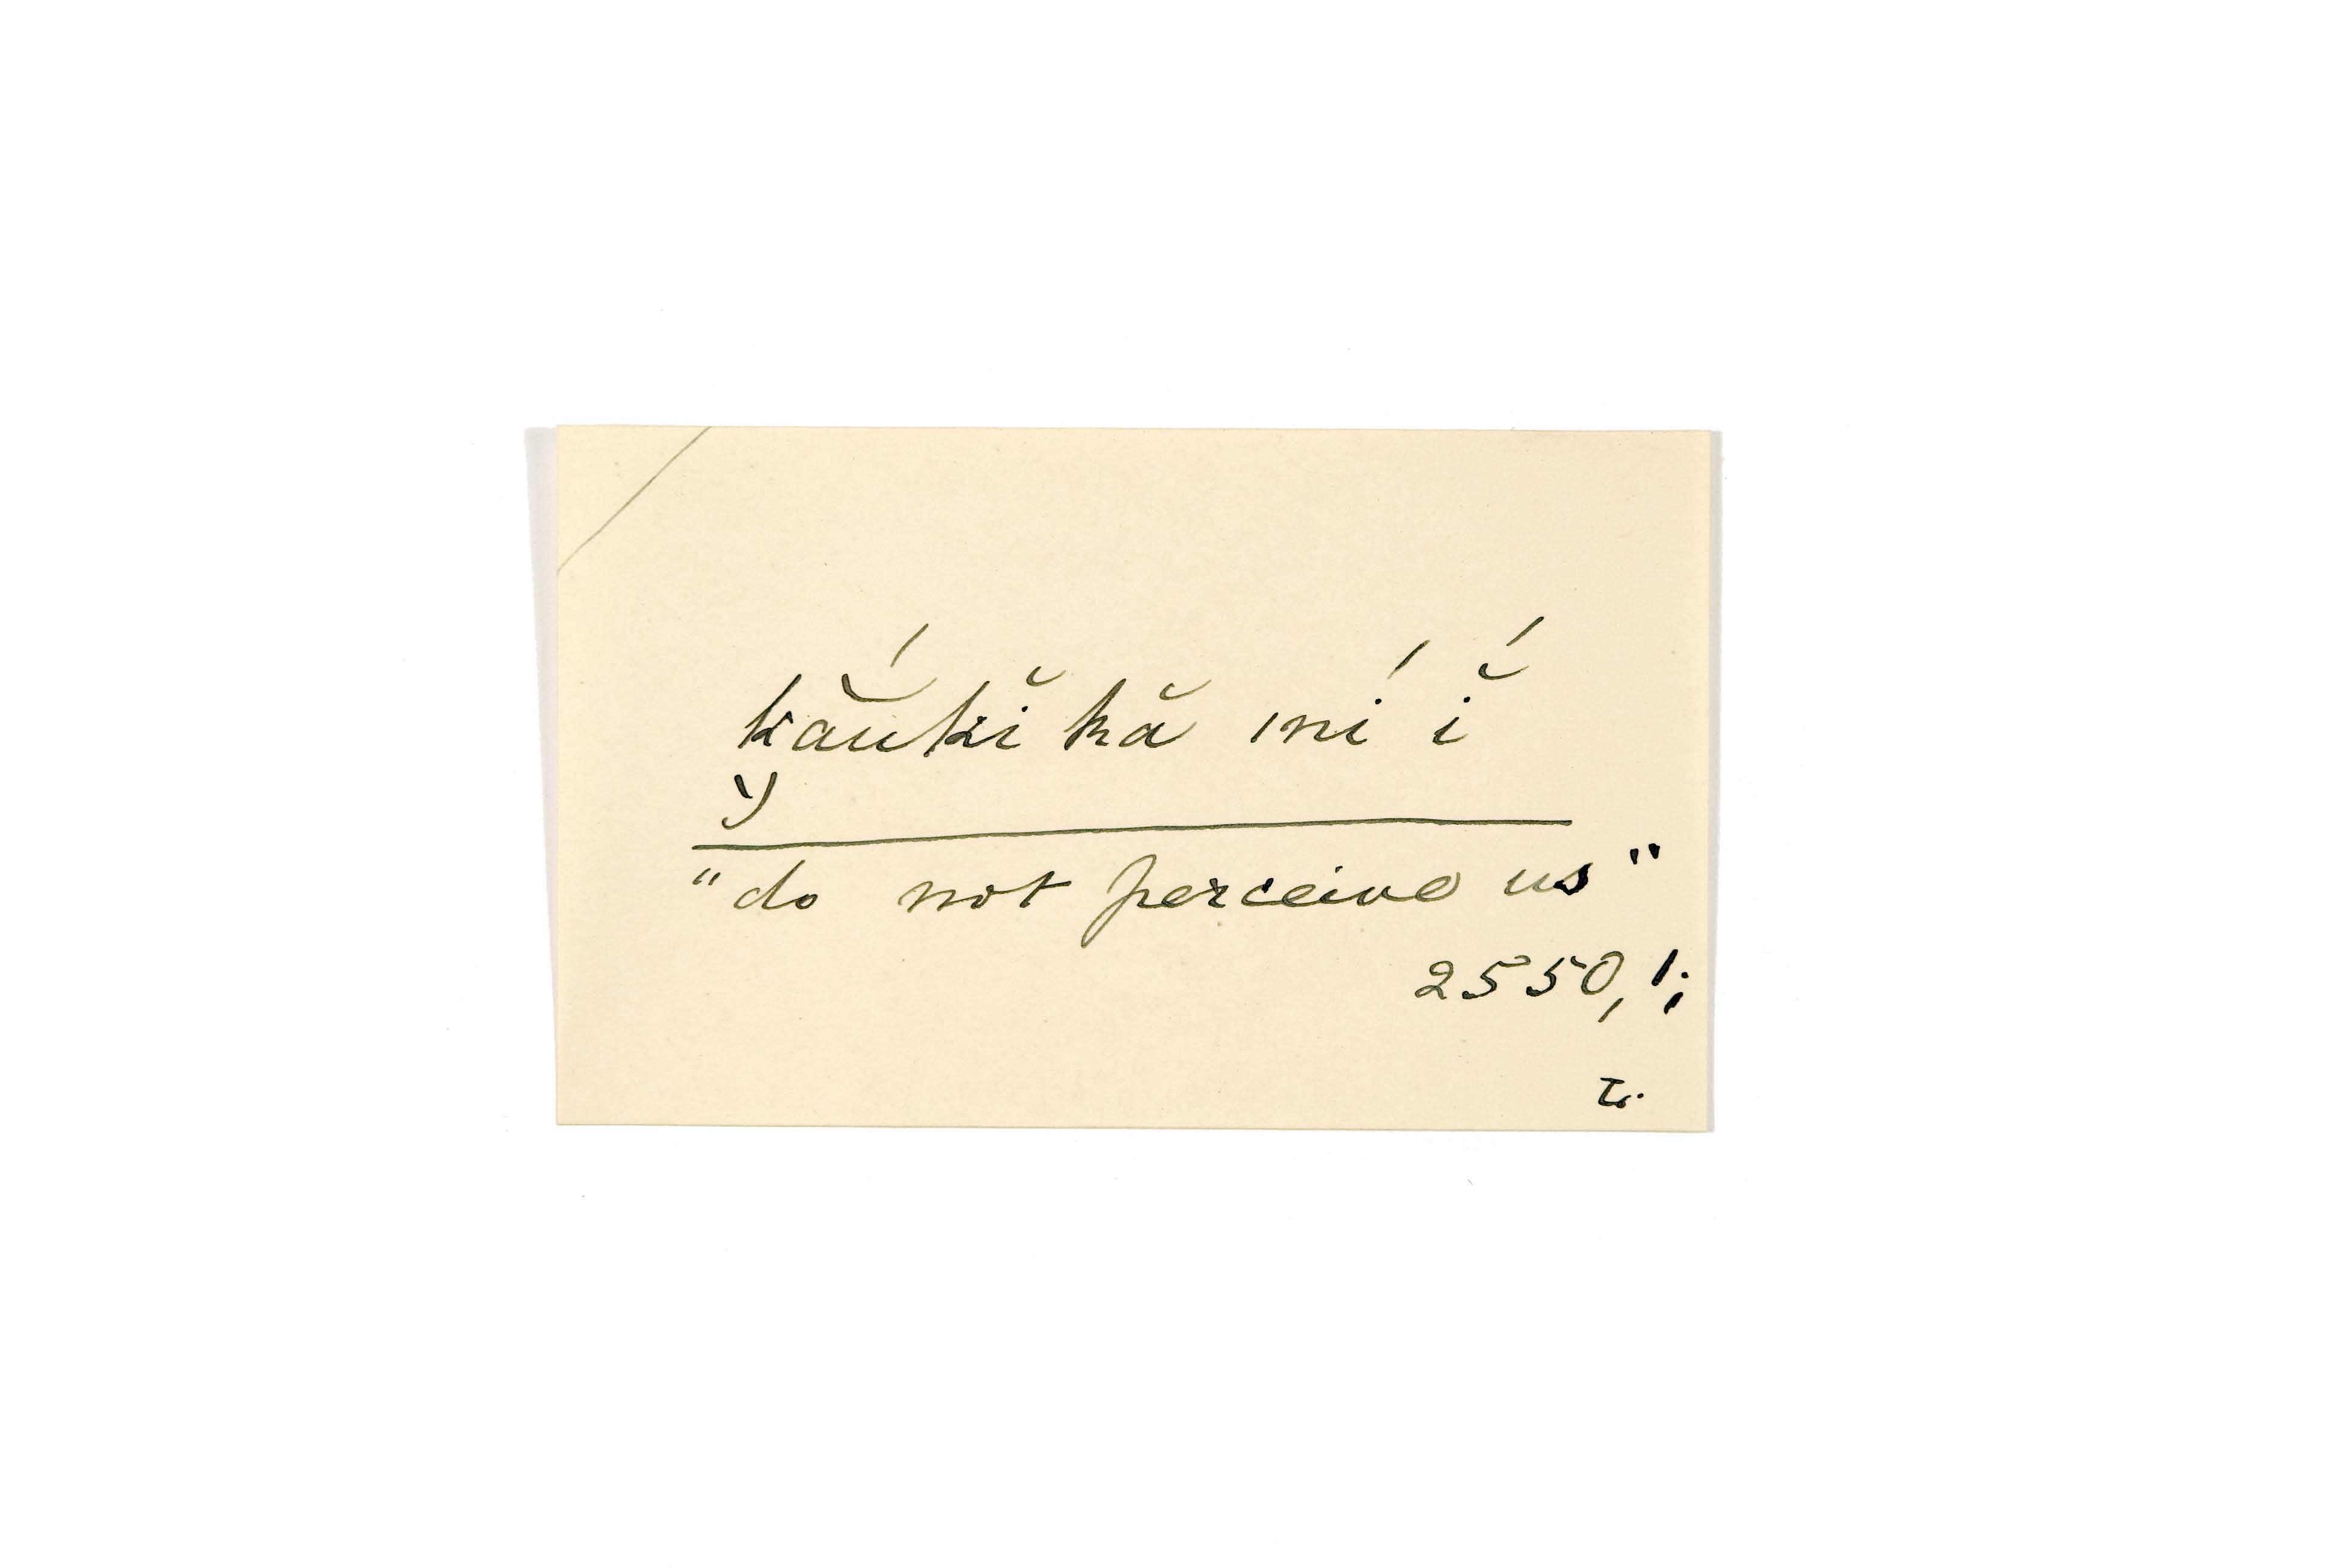 kăúkĭ kă mí ĭ́
y
"do not perceive us"
2550, 1;